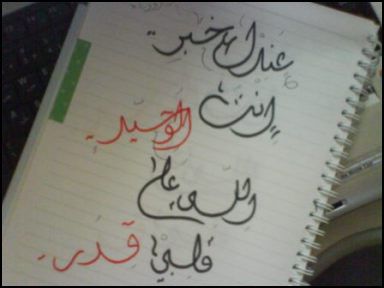 عندك اهم خبر..
إنت الوحيد..
اللي على
قلبي قدر..